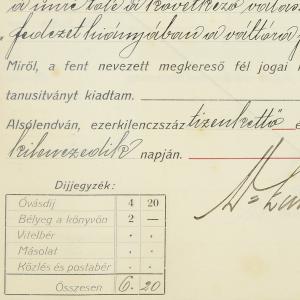 a mire tőle a következő válasz
fedezet hiányjában a váltóra
Miről, a fent nevezett megkereső fél jogai
tanusitványt kiadtam.
Alsólendván, ezerkilenczszáz tizenkettő
kilenczedik napján.
Dijjegyzék:
Óvásdij 4 20
Bélyeg a könyvön 2 —
Vitelbér . .
Másolat . .
Közlés és postabér . .
Összesen 6. 20